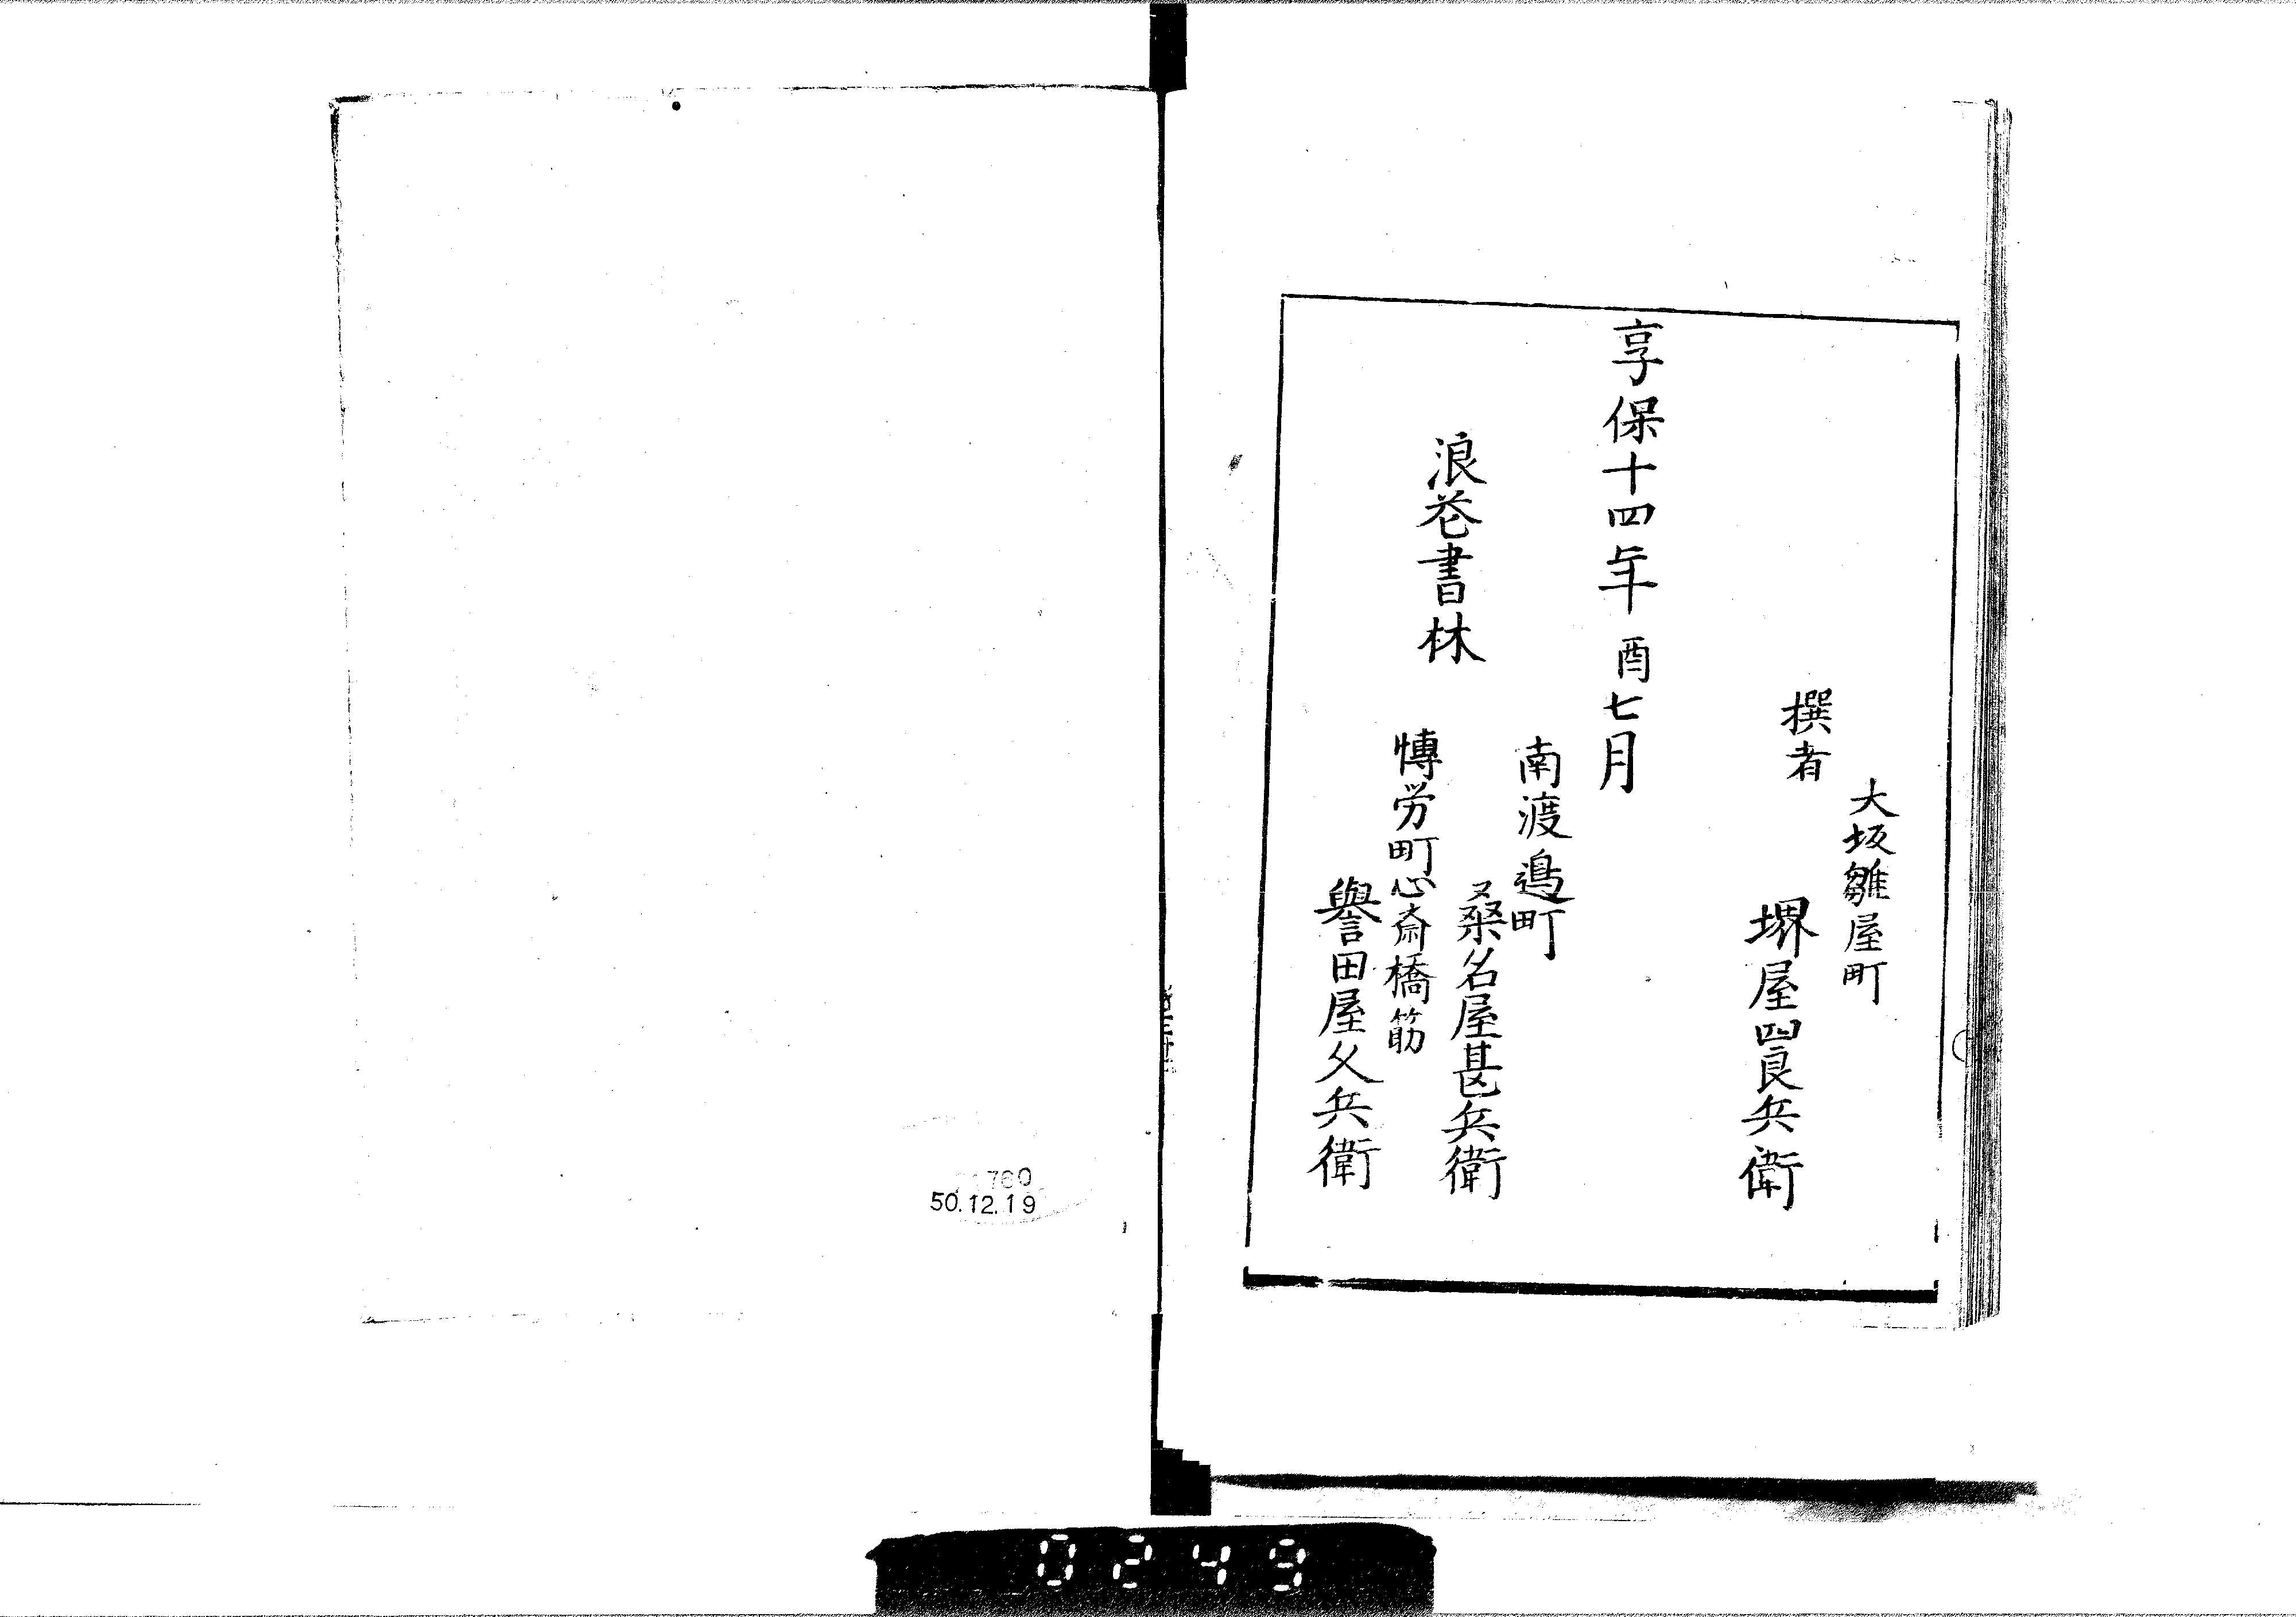 大坂雛屋町
撰者
堺屋四良兵衛
享保十四年酉七月
南渡邉町
桒名屋甚兵衛
浪花書林
博労町心斎橋筋
譽田屋久兵衛
760
50.12.19
0249